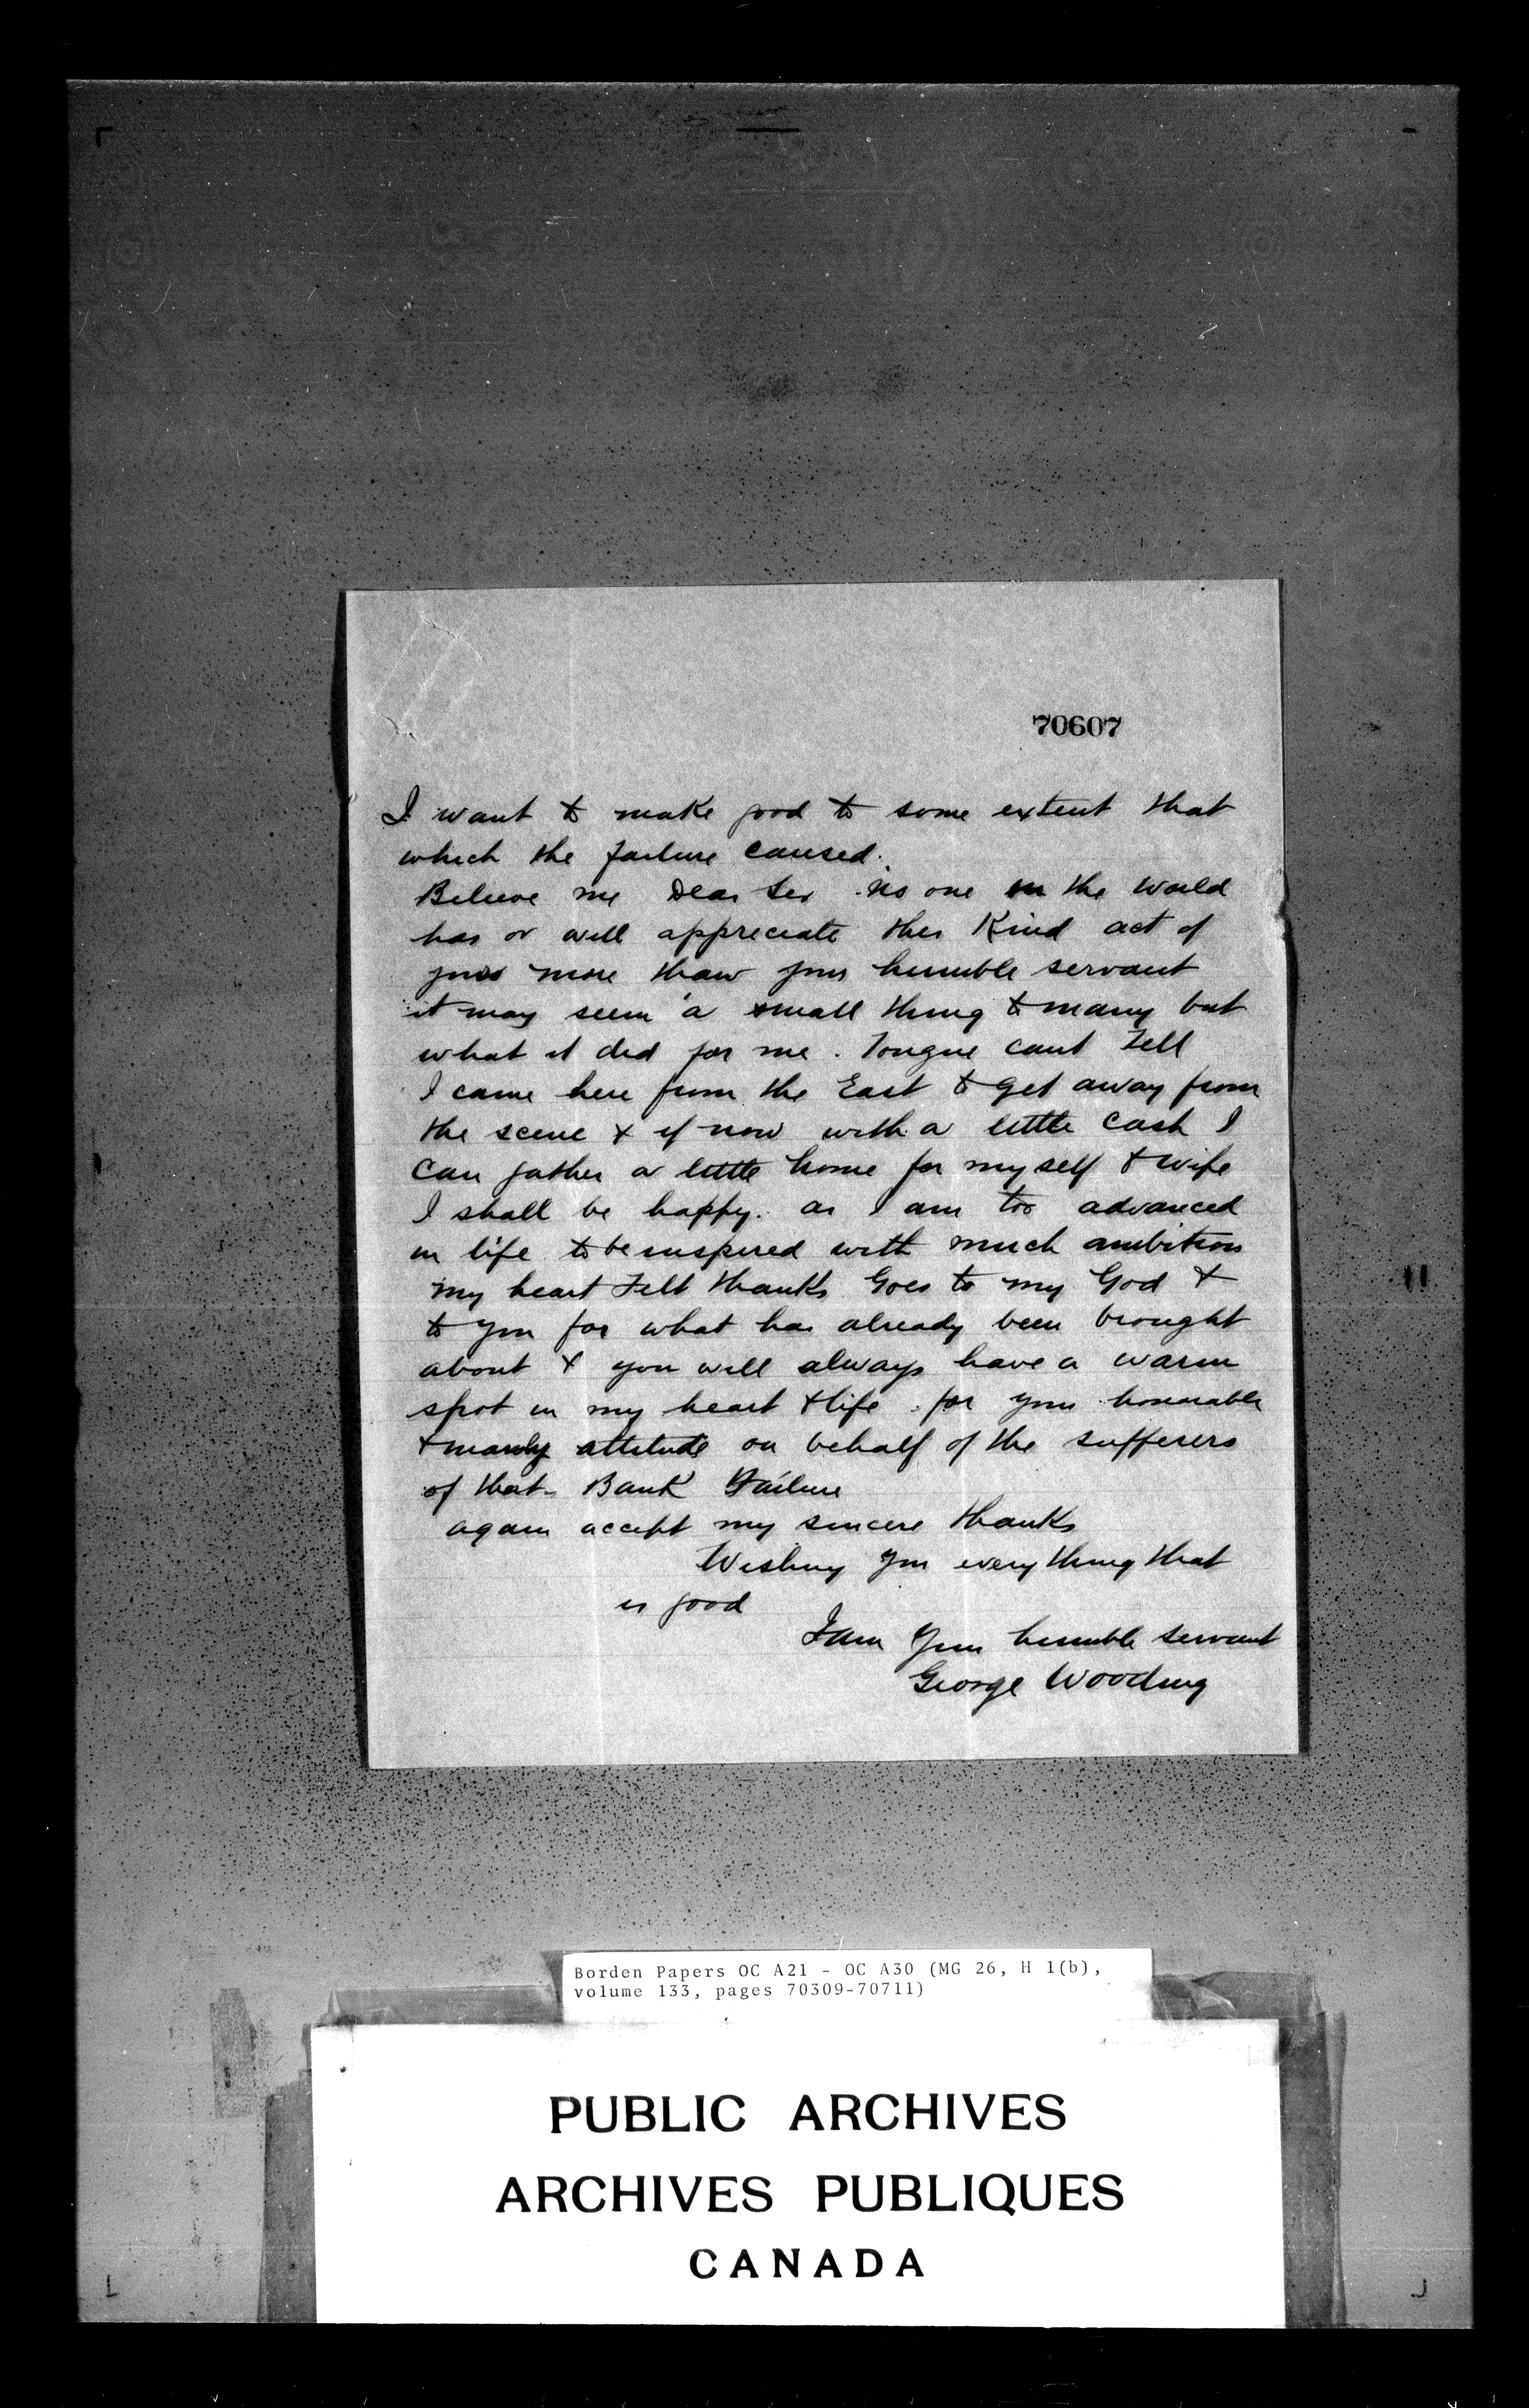 70607
I want to make good to some extent that
which the failure caused.
Believe me Dear Sir no one in the World
has or will appreciate this Kind act of
yours more than your humble servant
it may seem a small thing to many but
what it did for me. Tongue cant Tell
I came here from the East to get away from
the scene & if now with a little Cash I
Can gather a little home for myself & Wife
I shall be happy. as I am too advanced
in life to be inspired with much ambition
my heart Felt thanks Goes to my God &
to you for what has already been brought
about & you will always have a warm
spot in my heart & life. for your honourable
& manly attitude on behalf of the sufferers
of that Bank Failure
again accept my sincere thanks
Wishing you every thing that
is good
I am Your humble servant
George Wooding
Borden Papers OC A21 - OC A30 (MG 26, H 1(b),
volume 133, pages 70309-70711)
PUBLIC ARCHIVES
ARCHIVES PUBLIQUES
CANADA